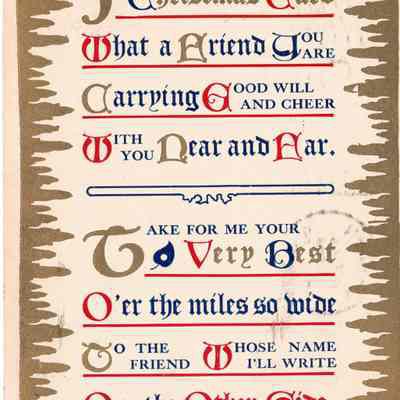 Christmas Card
What a Friend YOU ARE
Carrying GOOD WILL AND CHEER
WITH YOU Near and Far.
TAKE FOR ME YOUR
Very Best
O'er the miles so wide
TO THE FRIEND WHOSE NAME I'LL WRITE
On the Other Side.